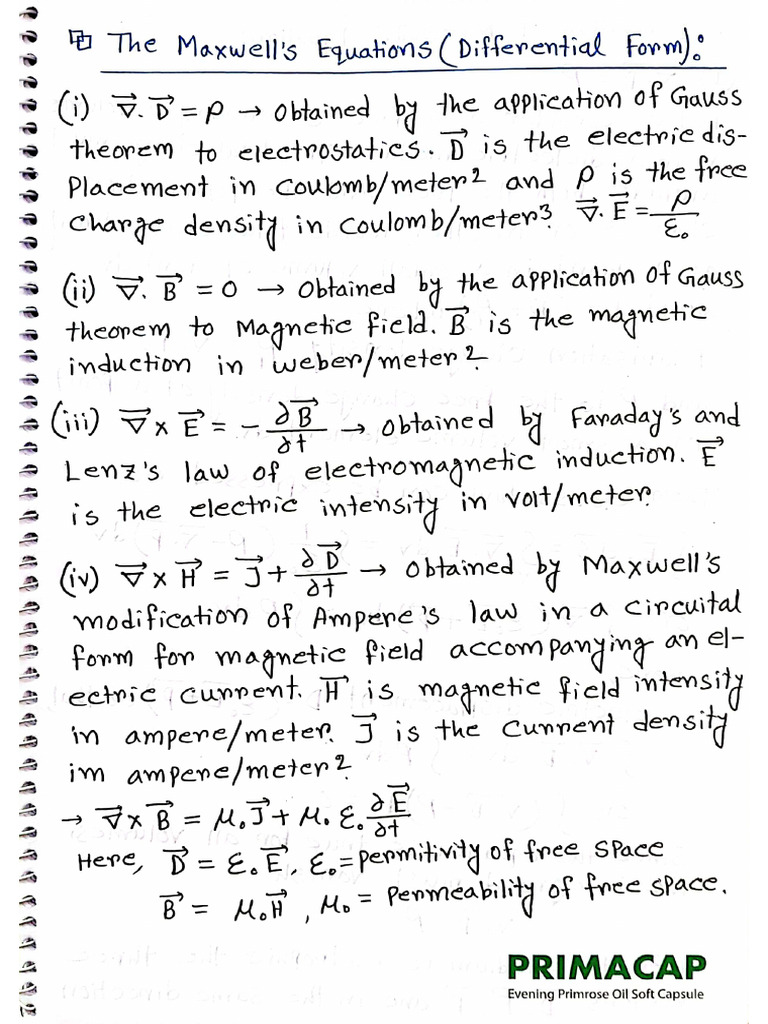 The Maxwell's Equations (Differential Form):
(i) ∇⃗. D⃗ = ρ → Obtained by the application of Gauss
theorem to electrostatics. D⃗ is the electric dis-
placement in Coulomb/meter² and ρ is the free
charge density in Coulomb/meter³. ∇⃗. E⃗ = ρ/ε₀
(ii) ∇⃗. B⃗ = 0 → Obtained by the application of Gauss
theorem to Magnetic field. B⃗ is the magnetic
induction in weber/meter².
(iii) ∇⃗ × E⃗ = - ∂B⃗/∂t → Obtained by Faraday's and
Lenz's law of electromagnetic induction. E⃗
is the electric intensity in volt/meter.
(iv) ∇⃗ × H⃗ = J⃗ + ∂D⃗/∂t → Obtained by Maxwell's
modification of Ampere's law in a circuital
form for magnetic field accompanying an el-
ectric current. H⃗ is magnetic field intensity
in ampere/meter. J⃗ is the current density
im ampere/meter².
→ ∇⃗ × B⃗ = μ₀J⃗ + μ₀ ε₀ ∂E⃗/∂t
Here, D⃗ = ε₀E⃗, ε₀ = permitivity of free space
B⃗ = μ₀H⃗, μ₀ = permeability of free space.
PRIMACAP
Evening Primrose Oil Soft Capsule